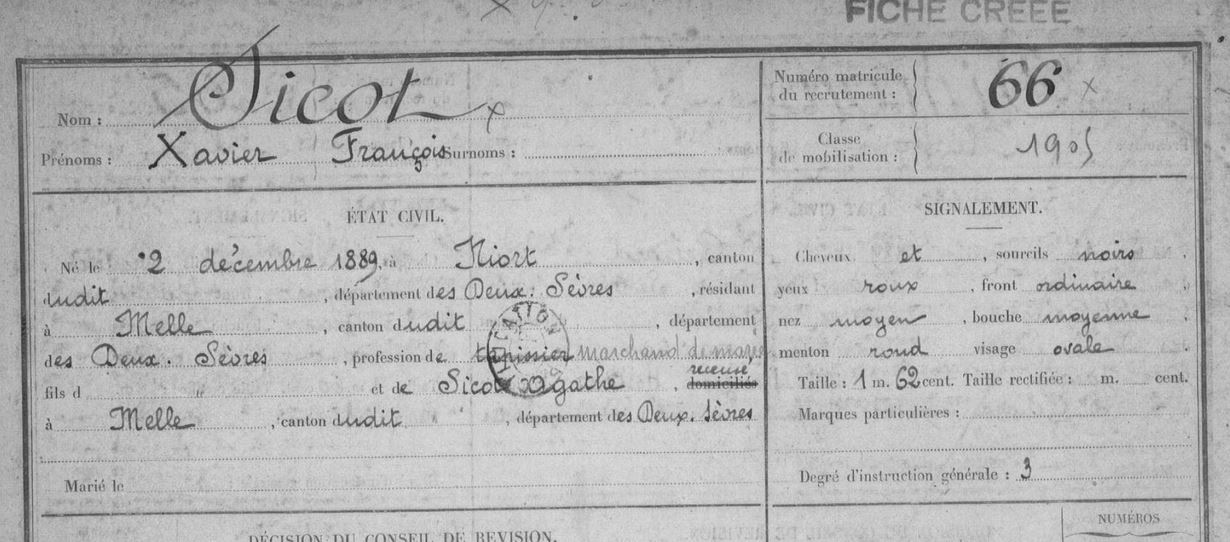 FICHE CRÉÉE
Nom : Sicot
Prénoms : Xavier François Surnoms :
Numéro matricule du recrutement : 66
Classe de mobilisation : 1905
ÉTAT CIVIL.
Né le 2 décembre 1889, à Niort, canton
dudit, département des Deux-Sèvres, résidant
à Melle, canton dudit, département
des Deux-Sèvres, profession de tapissier marchand de
fils d et de Sicot Agathe, domiciliés
à Melle, canton dudit, département des Deux-Sèvres
Marié le
SIGNALEMENT.
Cheveux et, sourcils noirs
yeux roux, front ordinaire
nez moyen, bouche moyenne
menton rond visage ovale
Taille : 1 m. 62 cent. Taille rectifiée : m. cent.
Marques particulières :
Degré d'instruction générale : 3
DÉCISION DU CONSEIL DE REVISION.
NUMÉROS